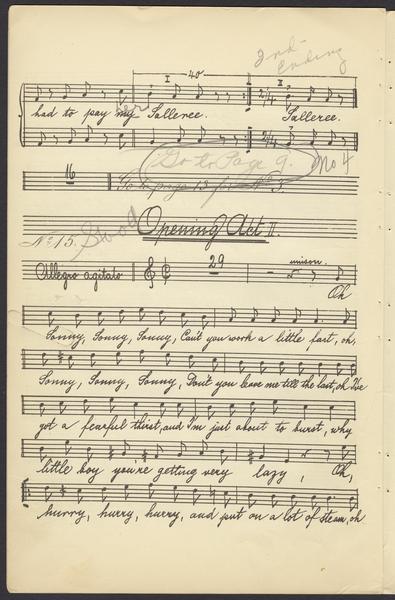 2nd
Ending
I 40 II
had to pay my Salleree. Salleree.
Go to Page 9. No 4
16 Go to page 13 for No 3.
Opening Act II.
No 15. Good
Allegro agitato 29 unison.
Oh
Sonny, Sonny, Sonny, Can't you work a little fast, oh,
Sonny, Sonny, Sonny, Don't you leave me till the last, oh I've
got a fearful thirst, and I'm just about to burst, why
little boy you're getting very lazy, Oh,
hurry, hurry, hurry, and put on a lot of steam, oh